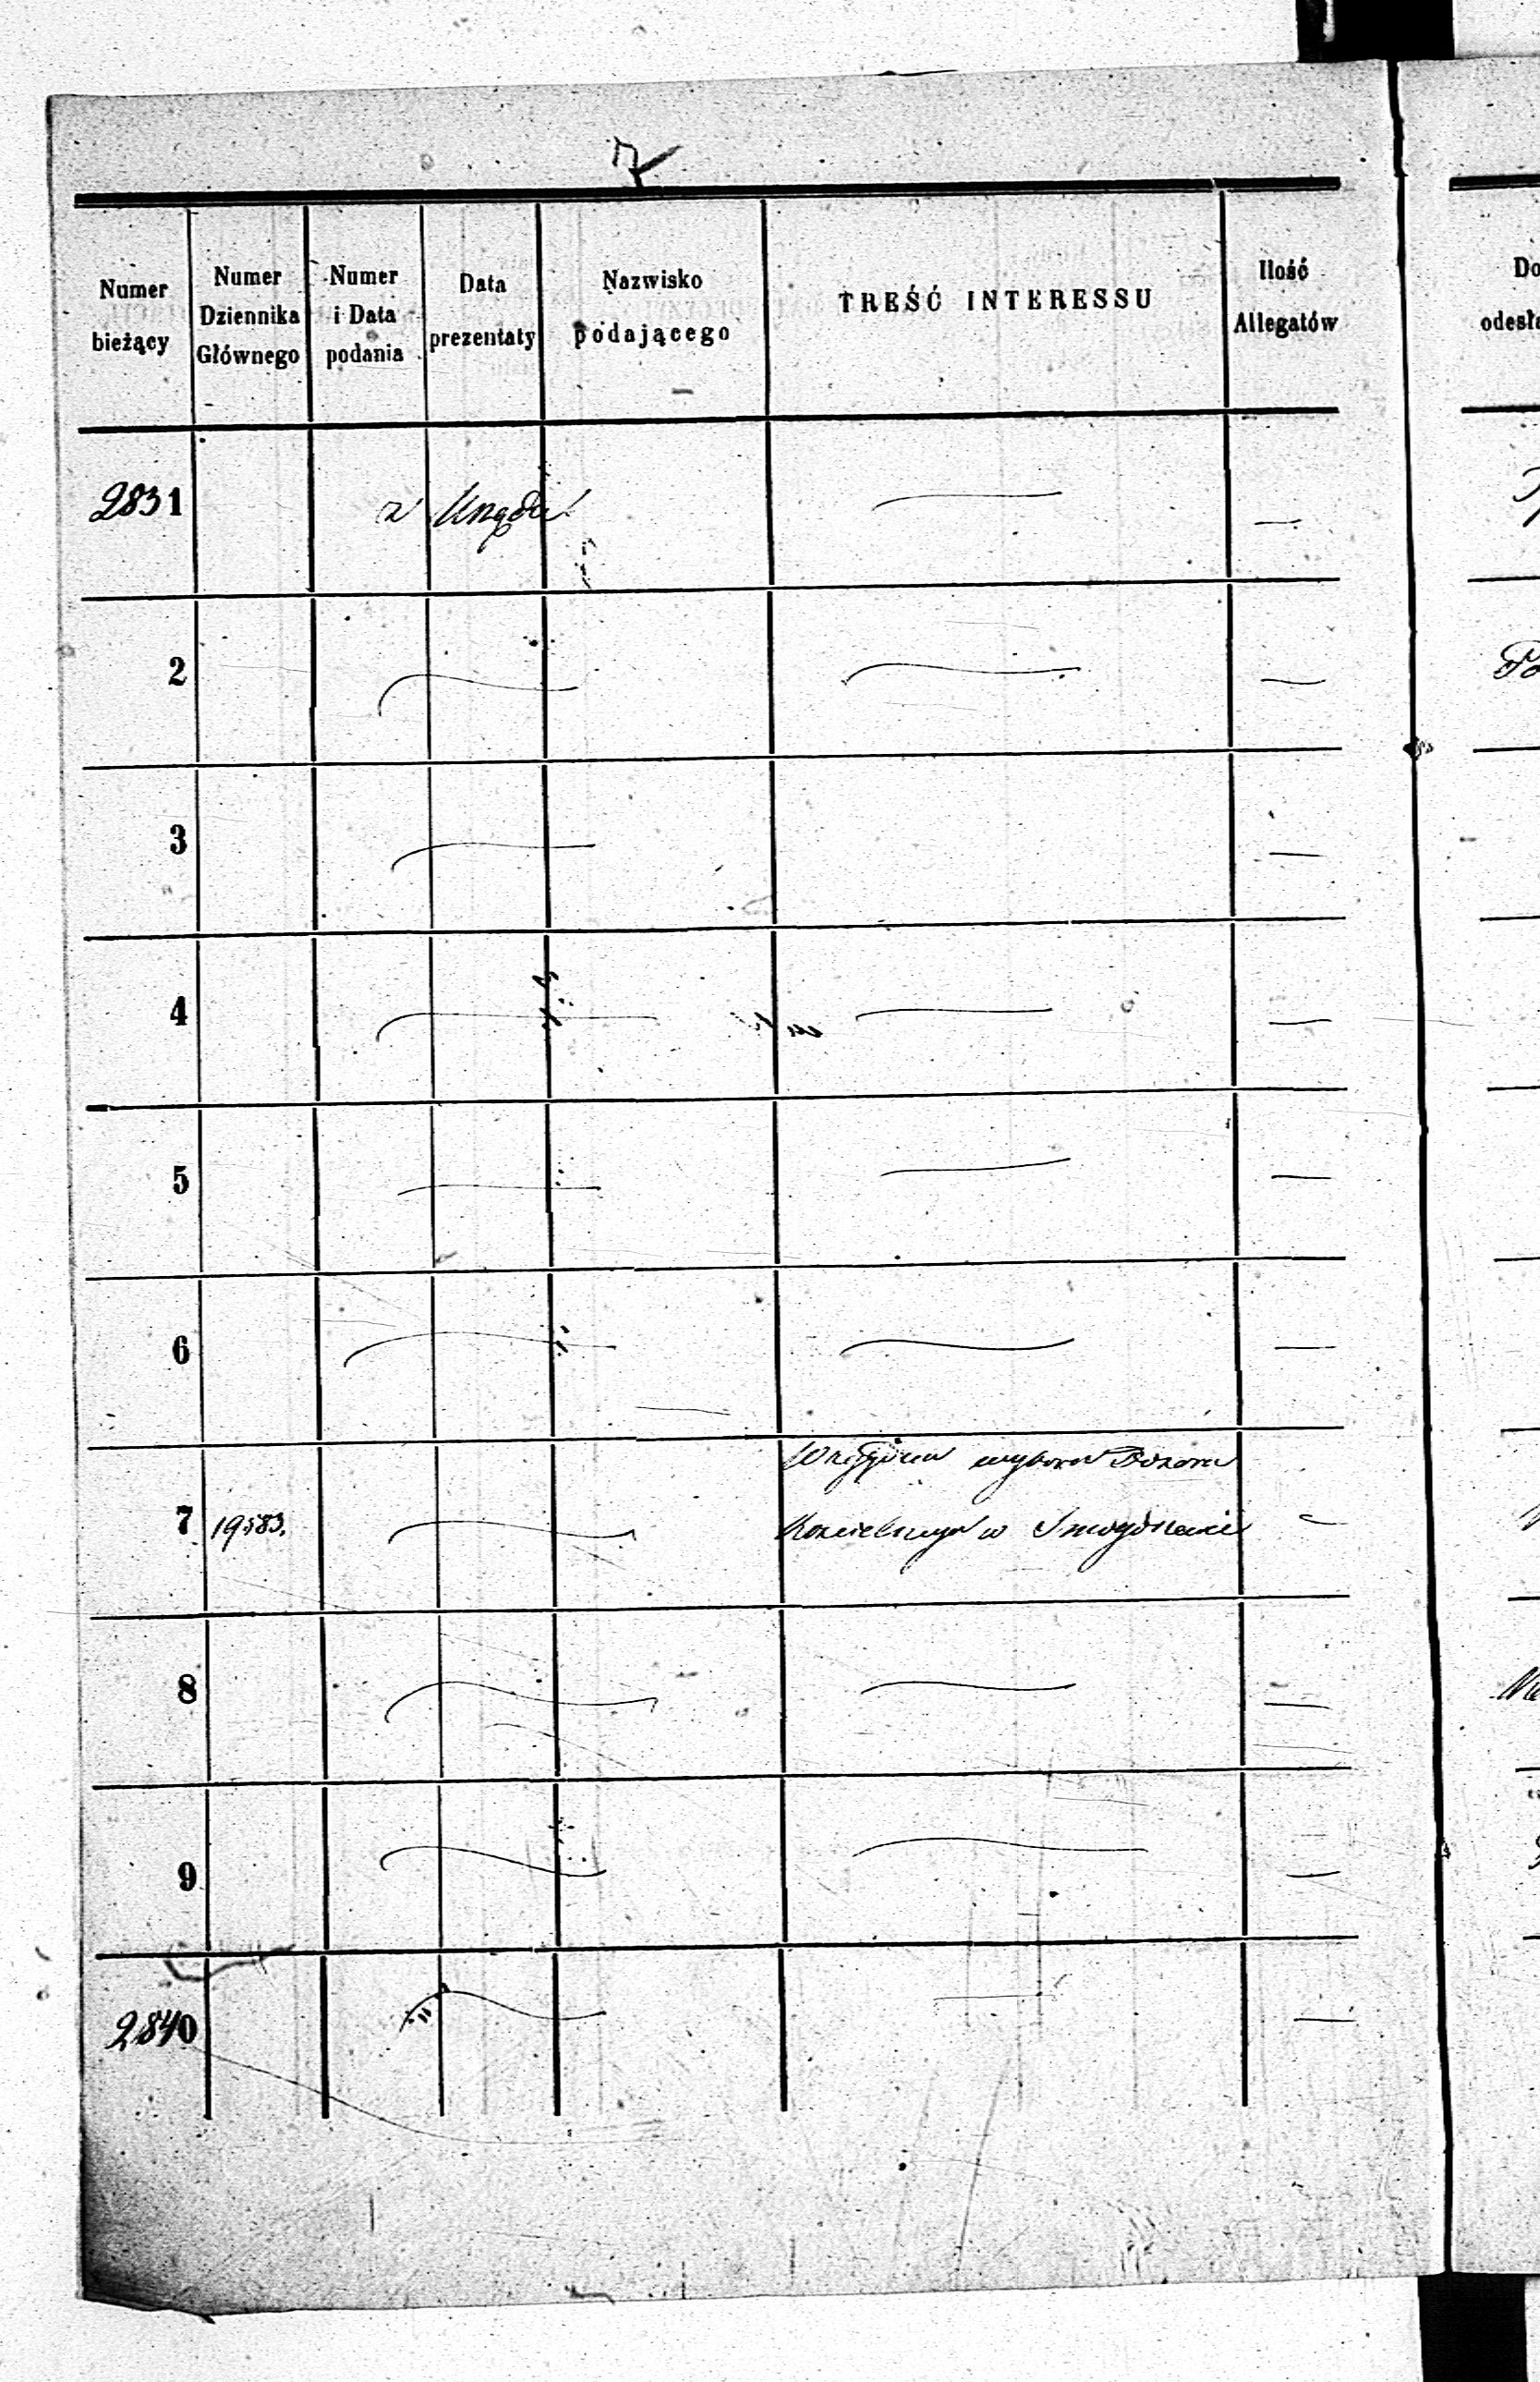 7
Numer bieżący
Numer Dziennika Głównego
Numer i Data podania
Data prezentaty
Nazwisko podającego
TREŚĆ INTERESSU
Ilość Allegatów
2831 z Urzędu —— —
2 —— —— —
3 —— —
4 —— —— —
5 —— —— —
6 —— —— —
Względem wyboru Dozoru
7 19583. —— Kościelnego w —
8 —— —— —
9 —— —— —
2840 —— —— —